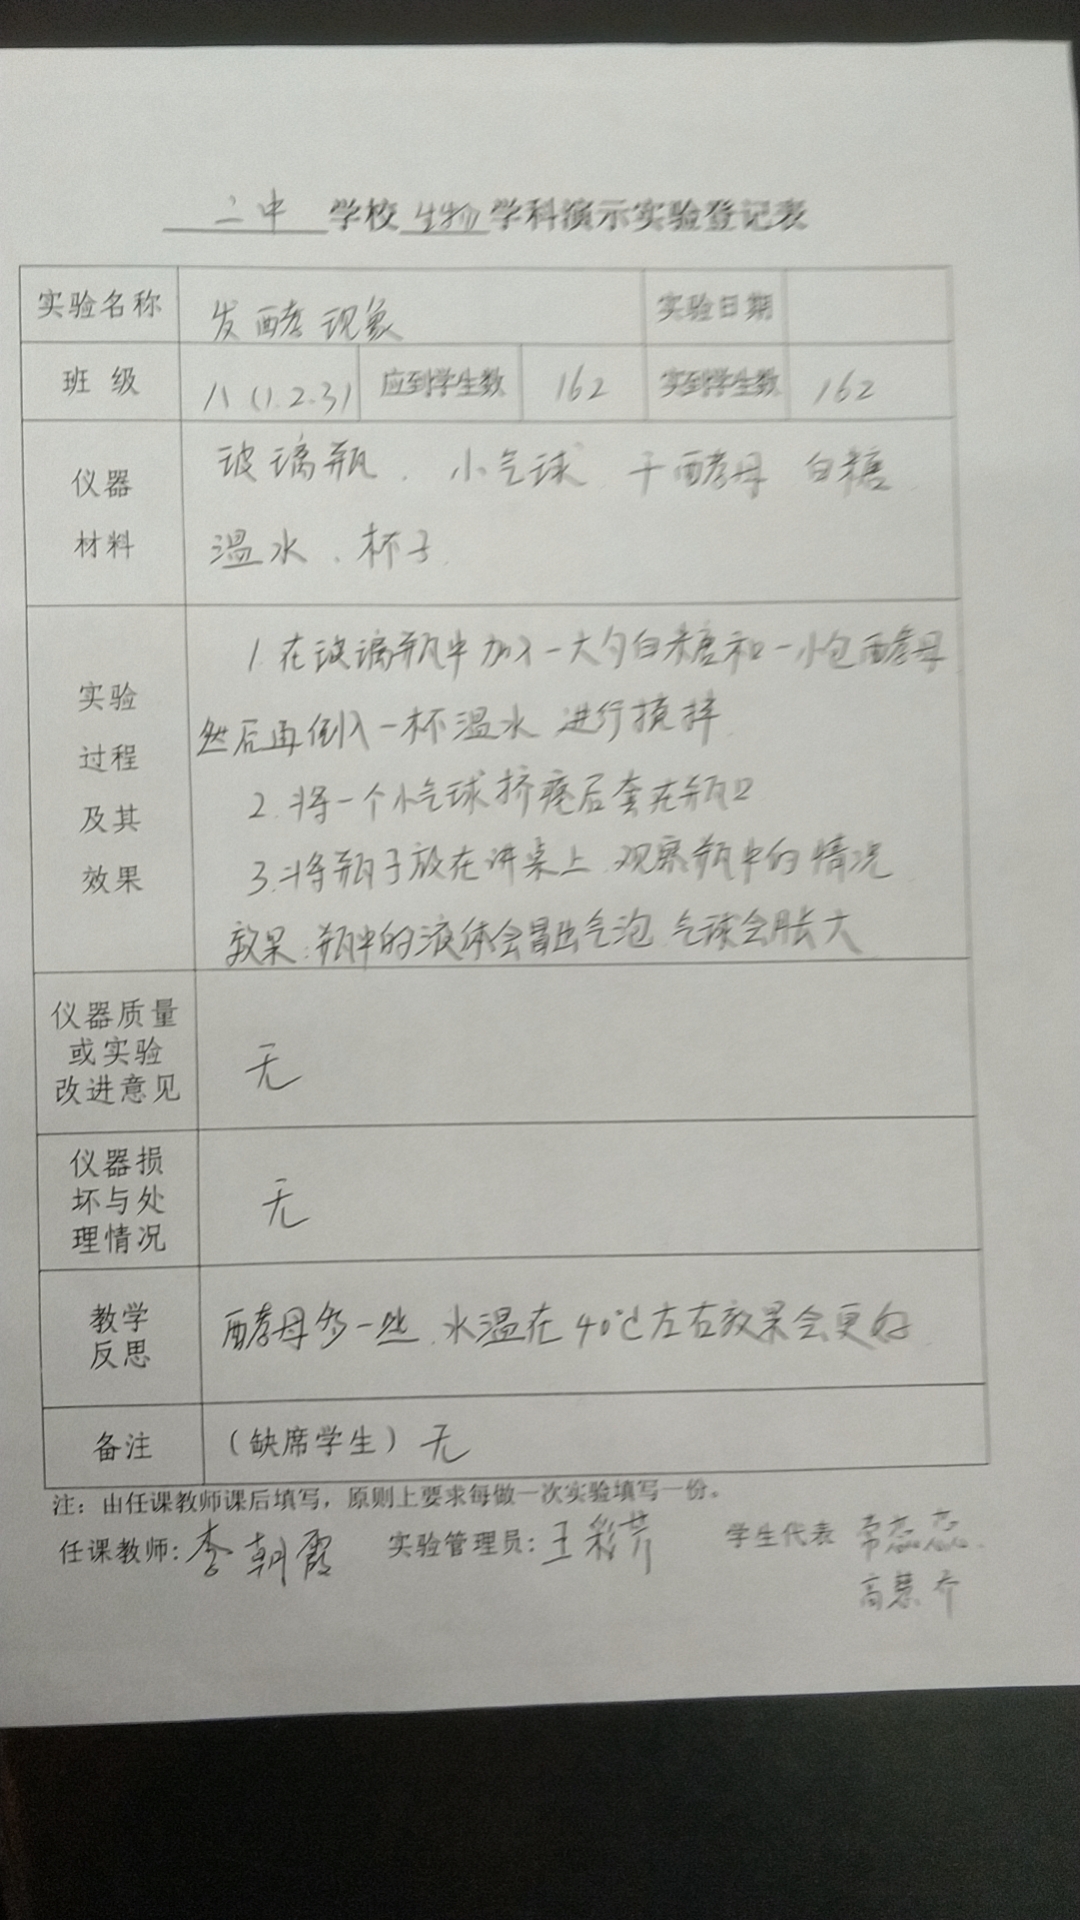 二中 学校 生物 学科演示实验登记表
实验名称 发酵现象 实验日期
班 级 八(1.2.3) 应到学生数 162 实到学生数 162
仪器
材料
玻璃瓶、小气球 干酵母 白糖
温水、杯子.
实验
过程
及其
效果
1.在玻璃瓶中加入一大勺白糖和一小包酵母
然后再倒入一杯温水 进行搅拌.
2.将一个小气球挤瘪后套在瓶口
3.将瓶子放在讲桌上.观察瓶中的情况
效果:瓶中的液体会冒出气泡.气球会胀大
仪器质量
或实验
改进意见
无
仪器损
坏与处
理情况
无
教学
反思
酵母多一些.水温在40℃左右效果会更好
备注 (缺席学生) 无
注：由任课教师课后填写，原则上要求每做一次实验填写一份。
任课教师: 李朝霞 实验管理员: 王彩芹 学生代表 常恋恋.
高慧乔